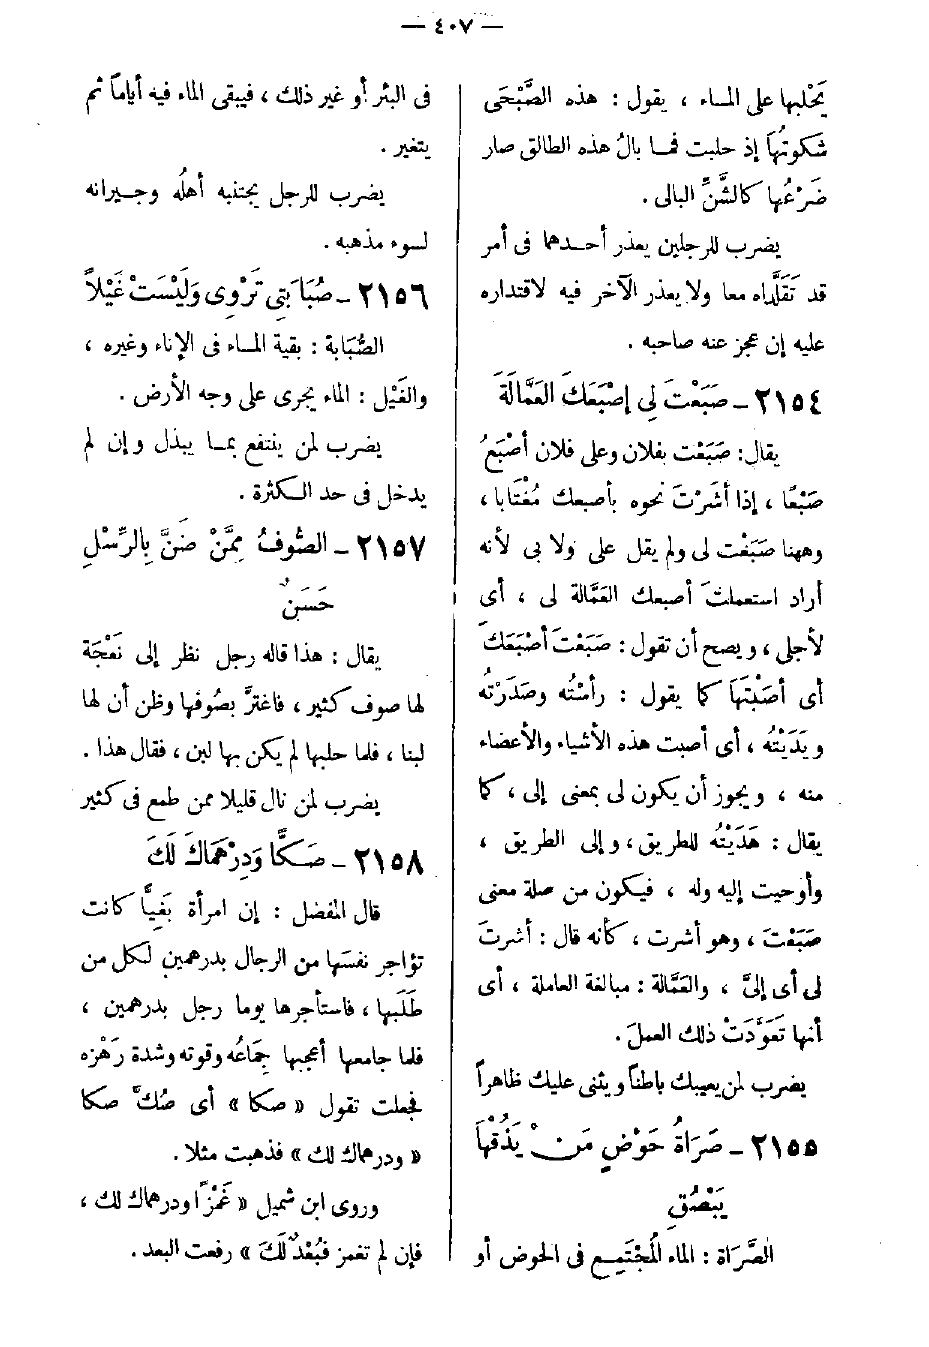 — ٤٠٧ —
يَحْلبها على المـاء ، يقول : هذه الصَّبْحَى
شكوتُهَا إذ حلبت فمـا بالُ هذه الطالق صار
ضَرْعُها كالشَّنِّ البالى .
يضرب للرجلين يعذر أحـدهما فى أمر
قد تَقَلَّدَاه معا ولا يعذر الآخر فيه لاقتداره
عليه إن عجز عنه صاحبه .
٢١٥٤ ــ صَبَعْتَ لِى إصْبَعَكَ العَمَّالَةَ
يقال: صَبَعْت بفلان وعلى فلان أصْبَعُ
صَبْعًا ، إذا أشَرْتَ نحوه بأصبعك مُغْتَابا ،
وههنا صَبَعْت لى ولم يقل على ولا بى لأنه
أراد استعملتَ أصبعك العَمَّالة لى ، أى
لأجلى ، ويصح أن تقول : صَبَعْتَ أصْبَعَكَ
أى أصَبْتَهَا كما يقول : رأسْتُه وصَدَرْتُه
ويَدَيْتُه ، أى أصبت هذه الأشياء والأعضاء
منه ، ويجوز أن يكون لى بمعنى إلى ، كما
يقال : هَدَيْتُه للطريق ، وإلى الطريق ،
وأوحيت إليه وله ، فيكون من صلة معنى
صَبَعْتَ ، وهو أشرت ، كأنه قال : أشرتَ
لى أى إلىَّ ، والعَمَّالة : مبالغة العاملة ، أى
أنها تَعَوَّدَتْ ذلك العملَ .
يضرب لمن يعيبك باطناً ويثنى عليك ظاهراً
٢١٥٥ ــ صَرَاةُ حَوْضٍ مَنْ يَذُقْهَا
يَبْصُقِ
الصَّرَاة : الماء المُجْتَمِـع فى الحوض أو
فى البئر أو غير ذلك ، فيبقى الماء فيه أياماً ثم
يتغير .
يضرب للرجل يجتنبه أهلُه وجـيرانه
لسوء مذهبه .
٢١٥٦ ــ صُبَابَتِى تَرْوِى وَلَيْسَتْ غَيْلاً
الصُّبَابة : بقية المـاء فى الإناء وغيره ،
والغَيْل : الماء يجرى على وجه الأرض .
يضرب لمن ينتفع بمـا يبذل وإن لم
يدخل فى حد الـكثرة .
٢١٥٧ ــ الصُّوفُ مِمَّنْ ضَنَّ بِالرِّسْلِ
حَسَنٌ
يقال : هذا قاله رجل نظر إلى نَعْجَة
لها صوف كثير ، فاغترَّ بصُوفها وظن أن لها
لبنا ، فلما حلبها لم يكن بها لبن ، فقال هذا .
يضرب لمن نال قليلا ممن طمع فى كثير
٢١٥٨ ــ صَـكًّا وَدِرْهَمَاكَ لَكَ
قال المفضل : إن امرأة بَغِيًّا كانت
تؤاجر نفسَها من الرجال بدرهمين لكل من
طَلَبها ، فاستأجرها يوما رجل بدرهمين ،
فلما جامعها أعجبها جِمَاعُه وقوته وشدة رَهْزه
فجعلت تقول « صكا » أى صُكَّ صكا
« ودرهماك لك » فذهبت مثلا .
وروى ابن شميل « غَمْزًا ودرهماك لك ،
فإن لم تغمز فَبُعْدٌ لَكَ » رفعت البعد .